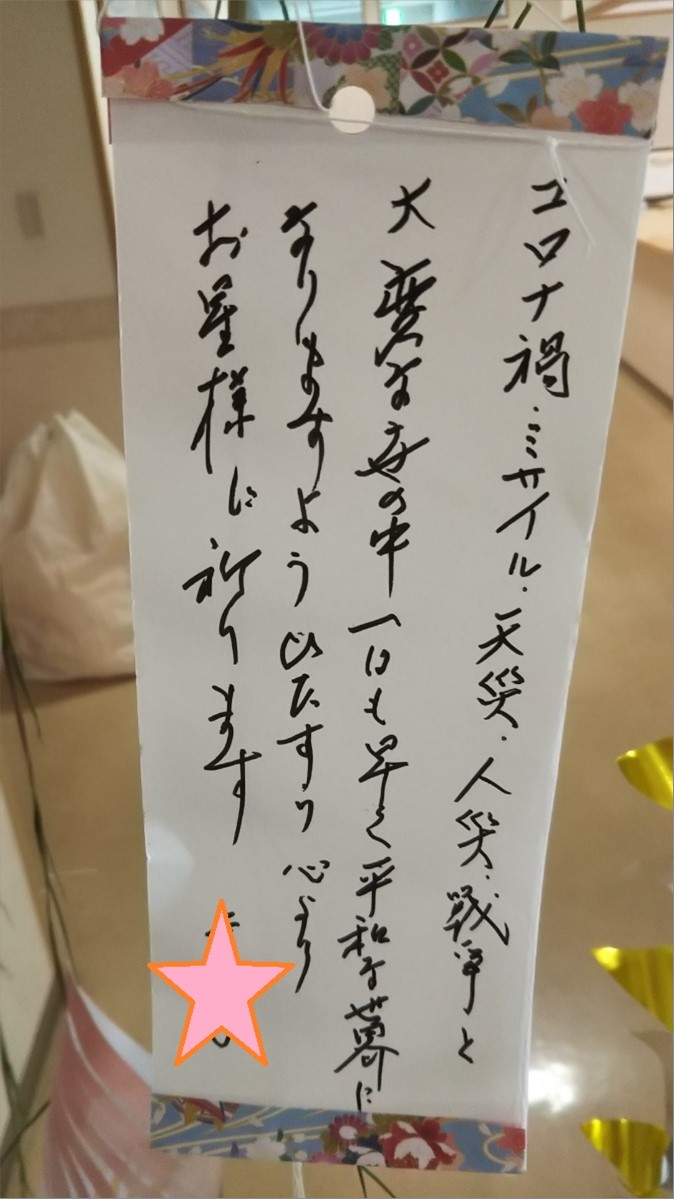 コロナ禍・ミサイル・天災・人災・戦争と
大変な世の中一日も早く平和な世界に
なりますようひたすら心より
お星様に祈ります